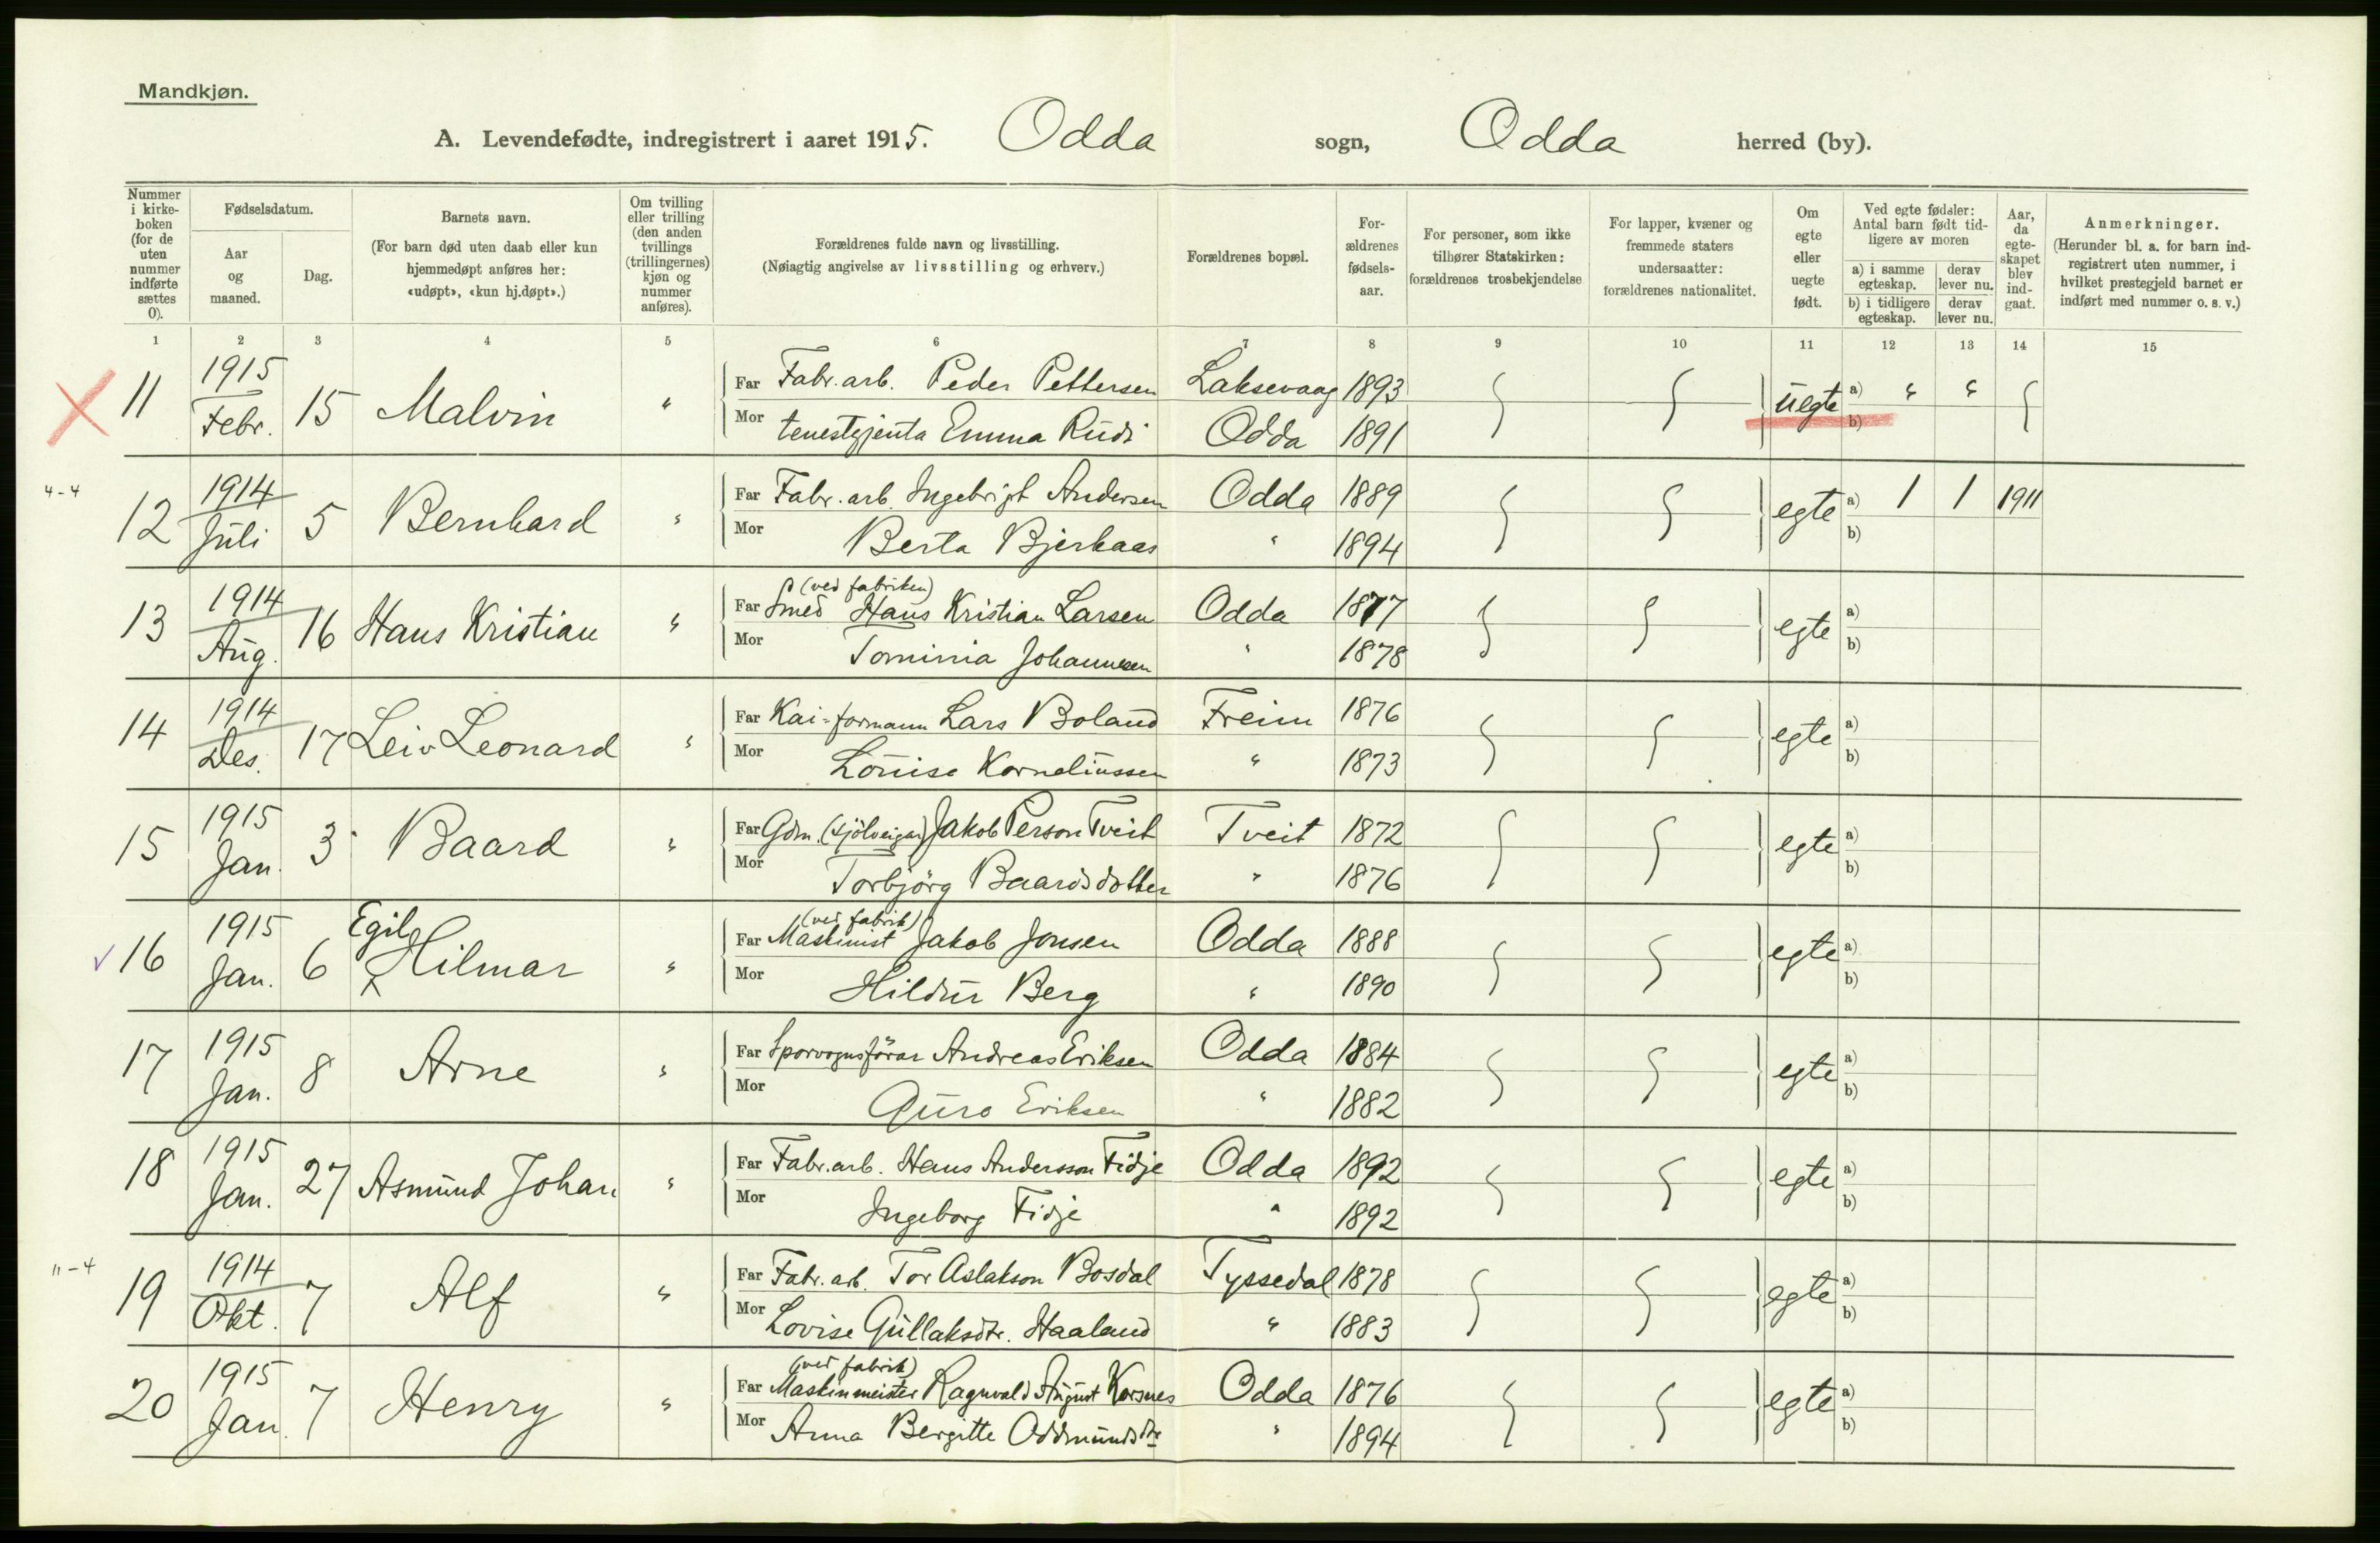 Mandkjøn.
A. Levendefødte, indregistrert i aaret 1915. Odda sogn, Odda herred (by).
Nummer i kirke-boken (for de uten nummer indførte sættes 0).
Fødselsdatum.
Aar og maaned.
Dag.
Barnets navn.
(For barn død uten daab eller kun hjemmedøpt anføres her: «udøpt», «kun hj.døpt».)
Om tvilling eller trilling (den anden tvillings (trillingernes) kjøn og nummer anføres).
Forældrenes fulde navn og livsstilling.
(Nøiagtig angivelse av livsstilling og erhverv.)
Forældrenes bopæl.
For-ældrenes fødsels-aar.
For personer, som ikke tilhører Statskirken: forældrenes trosbekjendelse
For lapper, kvæner og fremmede staters undersaatter: forældrenes nationalitet.
Om egte eller uegte født.
Ved egte fødsler: Antal barn født tid-ligere av moren
a) i samme egteskap.
derav lever nu.
b) i tidligere egteskap.
derav lever nu.
Aar, da egte-skapet blev ind-gaat.
Anmerkninger.
(Herunder bl. a. for barn ind-registrert uten nummer, i hvilket prestegjeld barnet er indført med nummer o. s. v.)
1 2 3 4 5 6 7 8 9 10 11 12 13 14 15
11 1915 Febr. 15 Malvin " Far Fabr. arb. Peder Pettersen Laksevaag 1893 uegte a) " "
Mor tenestgjenta Emma Rudi Odda 1891 b)
4-4
12 1914 Juli 5 Bernhard " Far Fabr. arb. Ingebrigt Andersen Odda 1889 egte a) 1 1 1911
Mor Berta Bjerkaas " 1894 b)
13 1914 Aug. 16 Hans Kristian " Far Smed (ved fabriken) Hans Kristian Larsen Odda 1877 egte a)
Mor Tominia Johannesen " 1878 b)
14 1914 Des. 17 Leiv Leonard " Far Kai-formann Lars Boland Freim 1876 egte a)
Mor Louise Korneliussen " 1873 b)
15 1915 Jan. 3 Baard " Far Gdm. (sjölveigar) Jakob Person Tveit Tveit 1872 egte a)
Mor Torbjörg Baardsdotter " 1876 b)
16 1915 Jan. 6 Egil Hilmar " Far Maskinist (ved fabrik) Jakob Jensen Odda 1888 egte a)
Mor Hildur Berg " 1890 b)
17 1915 Jan. 8 Arne " Far Sporvognsförar Andreas Eriksen Odda 1884 egte a)
Mor Guro Eriksen " 1882 b)
18 1915 Jan. 27 Asmund Johan " Far Fabr. arb. Hans Andersson Fidje Odda 1892 egte a)
Mor Ingeborg Fidje " 1892 b)
11-4
19 1914 Okt. 7 Alf " Far Fabr. arb. Tor Aslakson Bosdal Tyssedal 1878 egte a)
Mor Lovise Gullaksdtr. Haaland " 1883 b)
20 1915 Jan. 7 Henry " Far Maskinmeister (ved fabrik) Ragnvald August Korsnes Odda 1876 egte a)
Mor Anna Bergitte Oddmundsdtr " 1894 b)